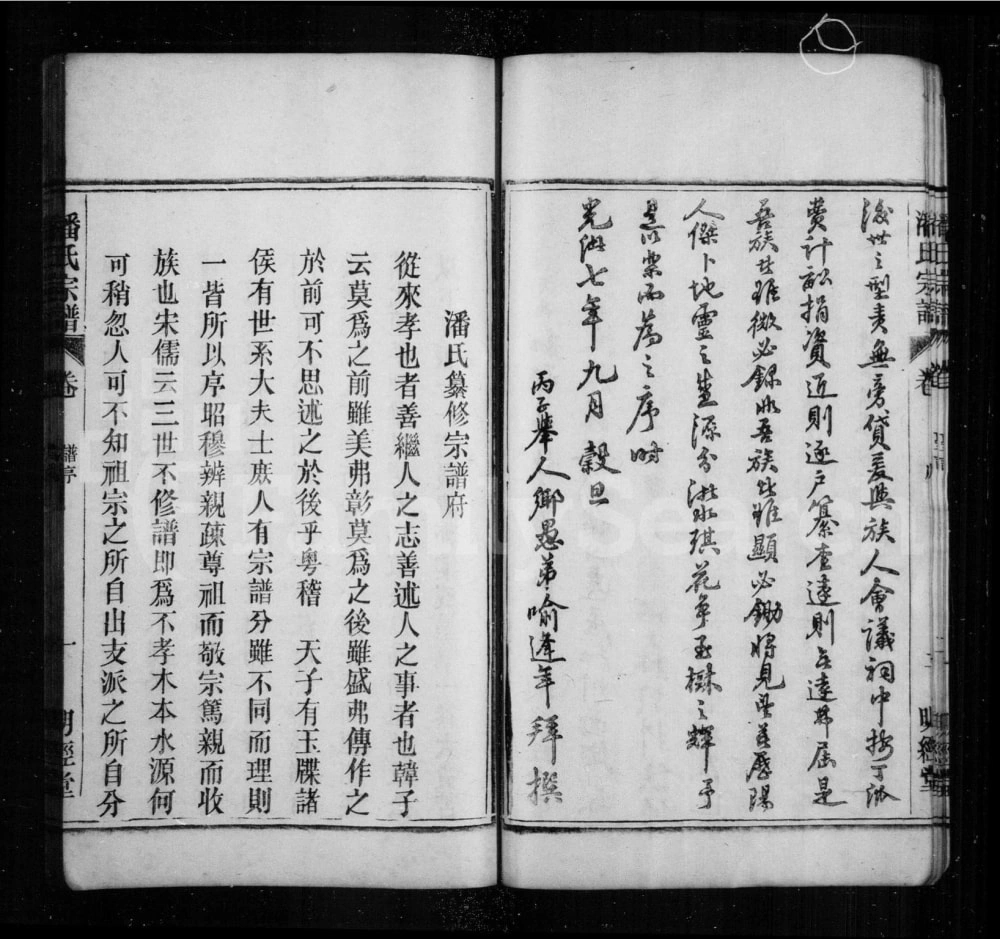 潘氏宗譜 卷
明經堂
後世之型責無旁貸爰與族人會議祠中按丁派
費計畝捐資近則逐戶纂查遠則
吾族也雖微必錄非吾族也雖顯必鋤將見
人傑卜地靈之
是以樂而為之序時
光緒七年九月穀旦
丙子舉人鄉愚弟喻逢年拜撰
潘氏纂修宗譜府
從來孝也者善繼人之志善述人之事者也韓子
云莫爲之前雖美弗彰莫爲之後雖盛弗傳作之
於前可不思述之於後乎粵稽 天子有玉牒諸
侯有世系大夫士庶人有宗譜分雖不同而理則
一皆所以序昭穆辨親疎尊祖而敬宗篤親而收
族也宋儒云三世不修譜即爲不孝木本水源何
可稍忽人可不知祖宗之所自出支派之所自分
潘氏宗譜 卷 譜序 一 明經堂
FamilySearch